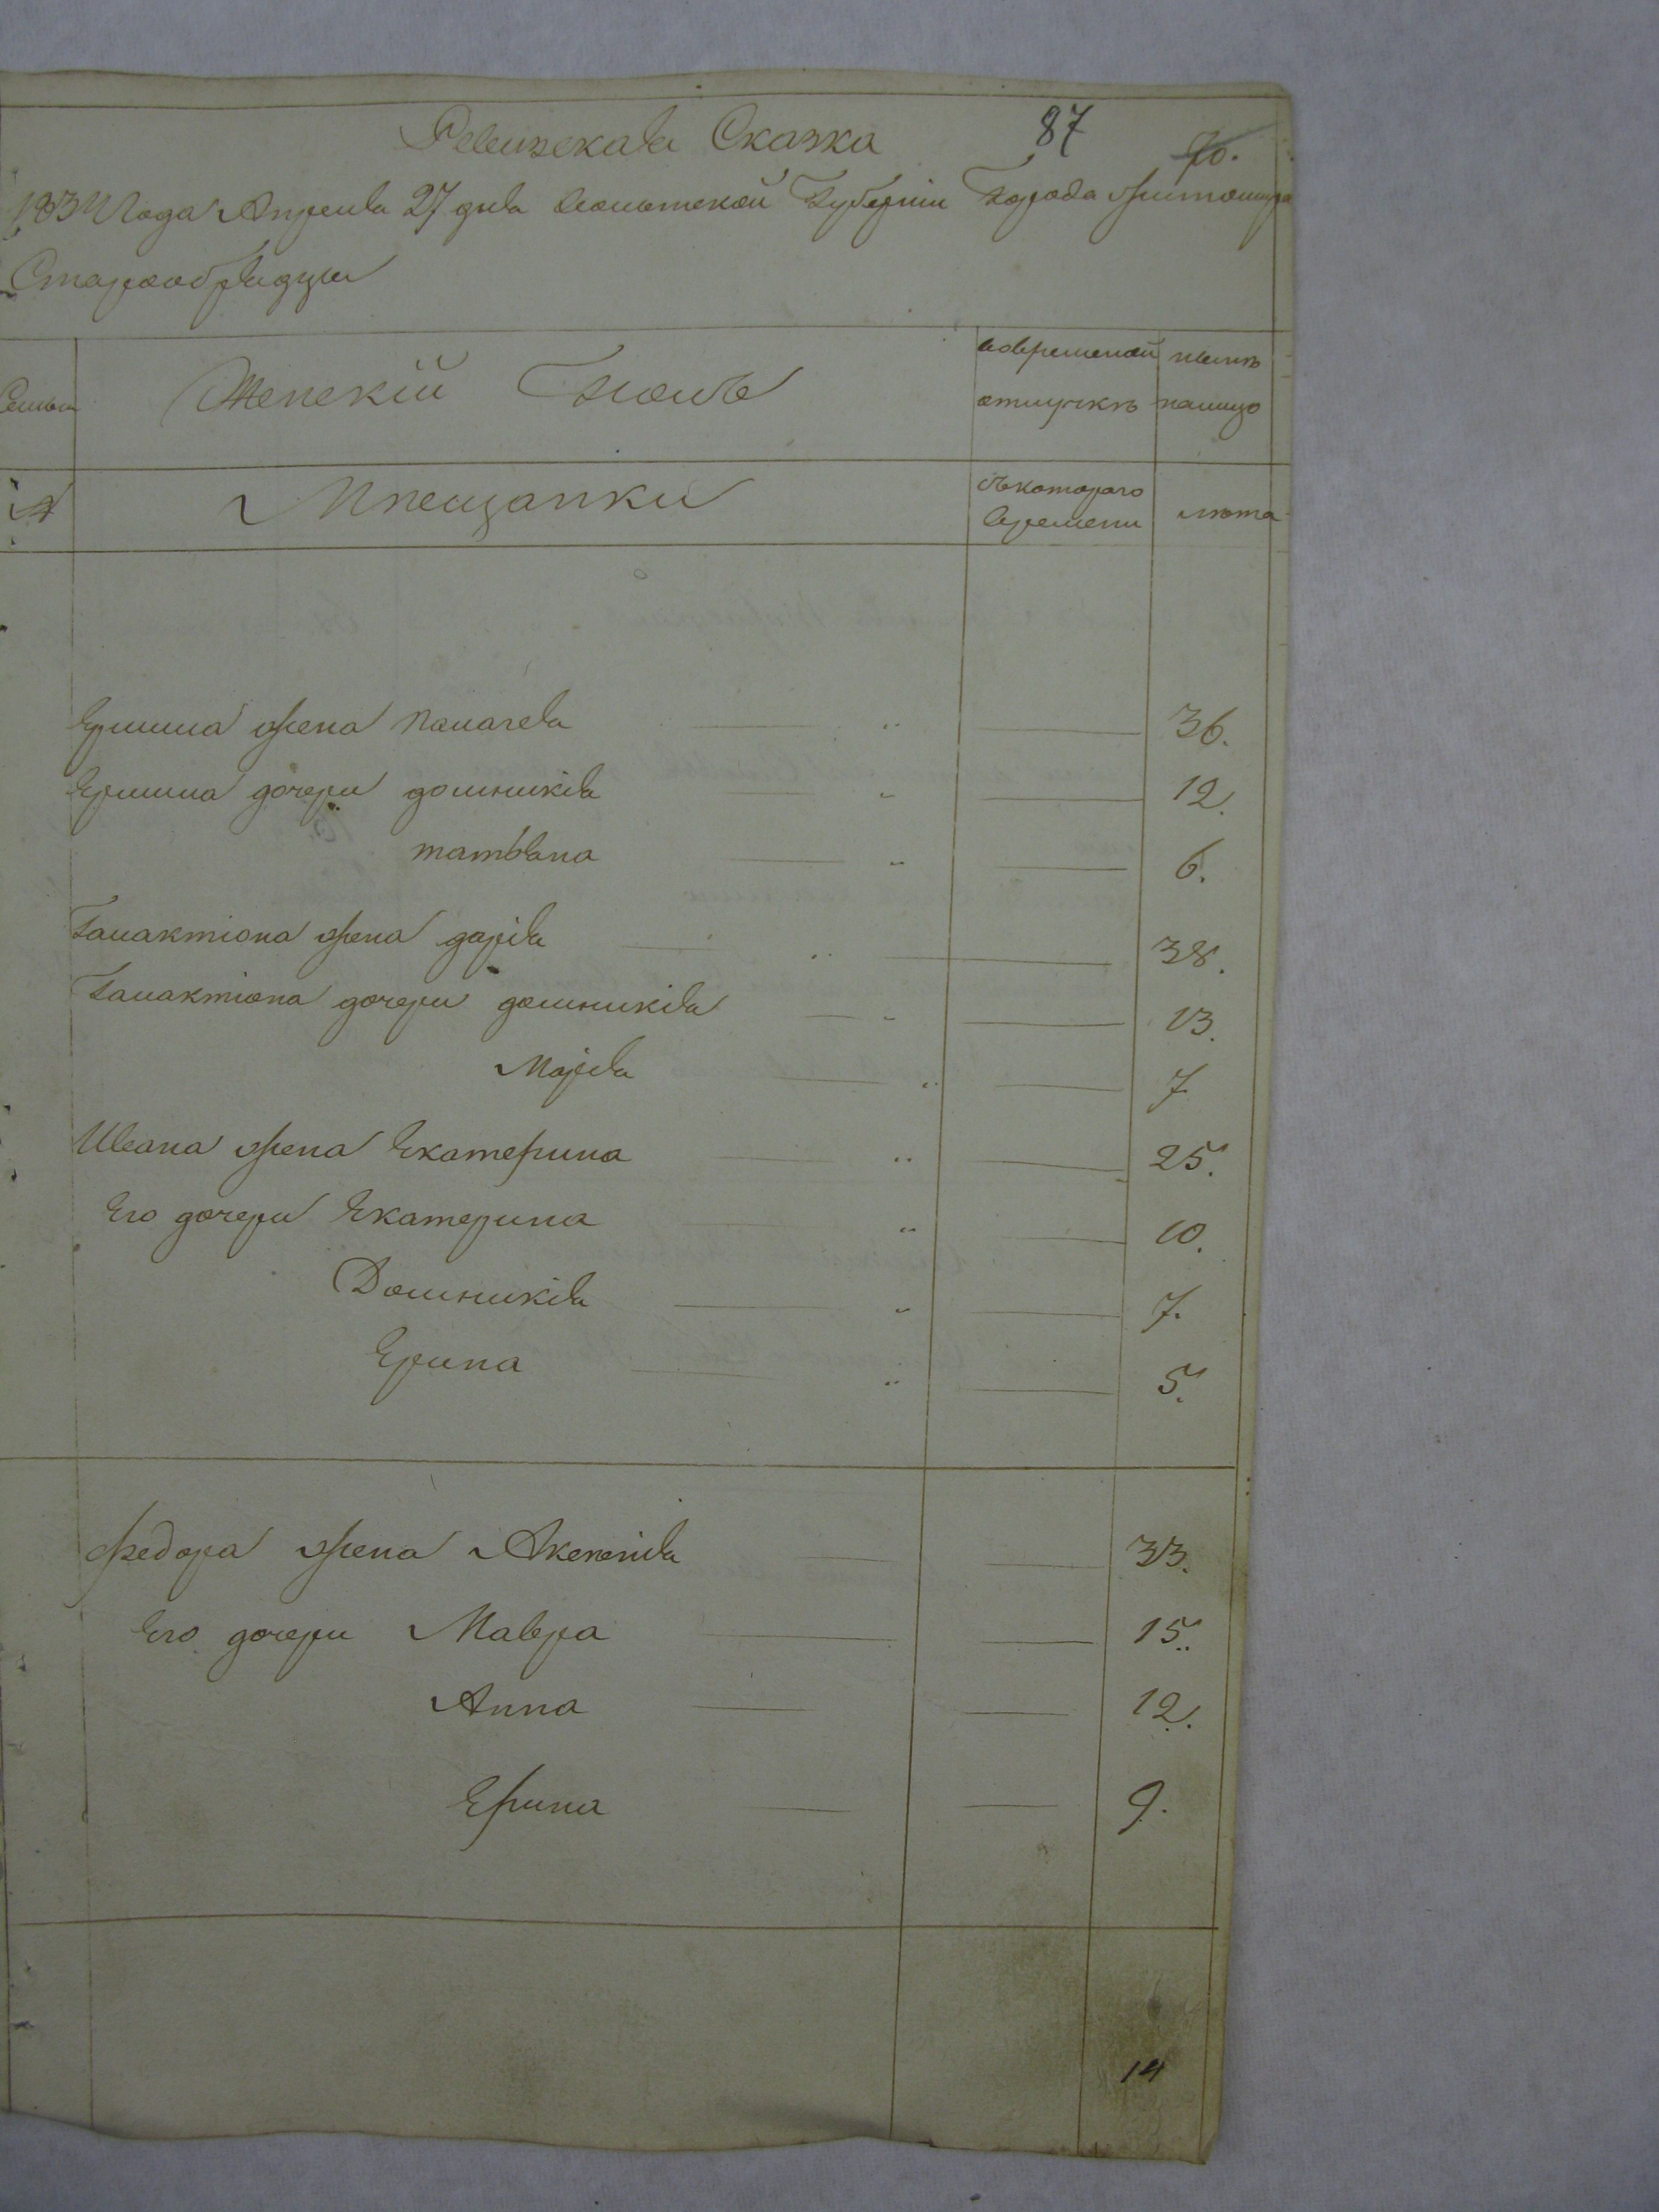 Ревизская Сказка 87 90.
1834 года Апреля 27 дня волынской Губернии Города житомира
Старообрядцы
Семьи Женскій Полъ вовременой отлучкъ нынъ налицо
№ Мпещанки съкотораго времени лъта
жена Палагея 36.
дочери домникія 12.
татьяна 6.
Галактиона жена дарія 38.
Галактиона дочери домникія 13.
Марія 7
Ивана жена Екатерина 25.
Его дочери Екатерина 10.
Домникія 7.
Ерина 5.
федора жена Аксенія 33.
Его дочери Мавра 15.
Анна 12.
Ерина 9.
14